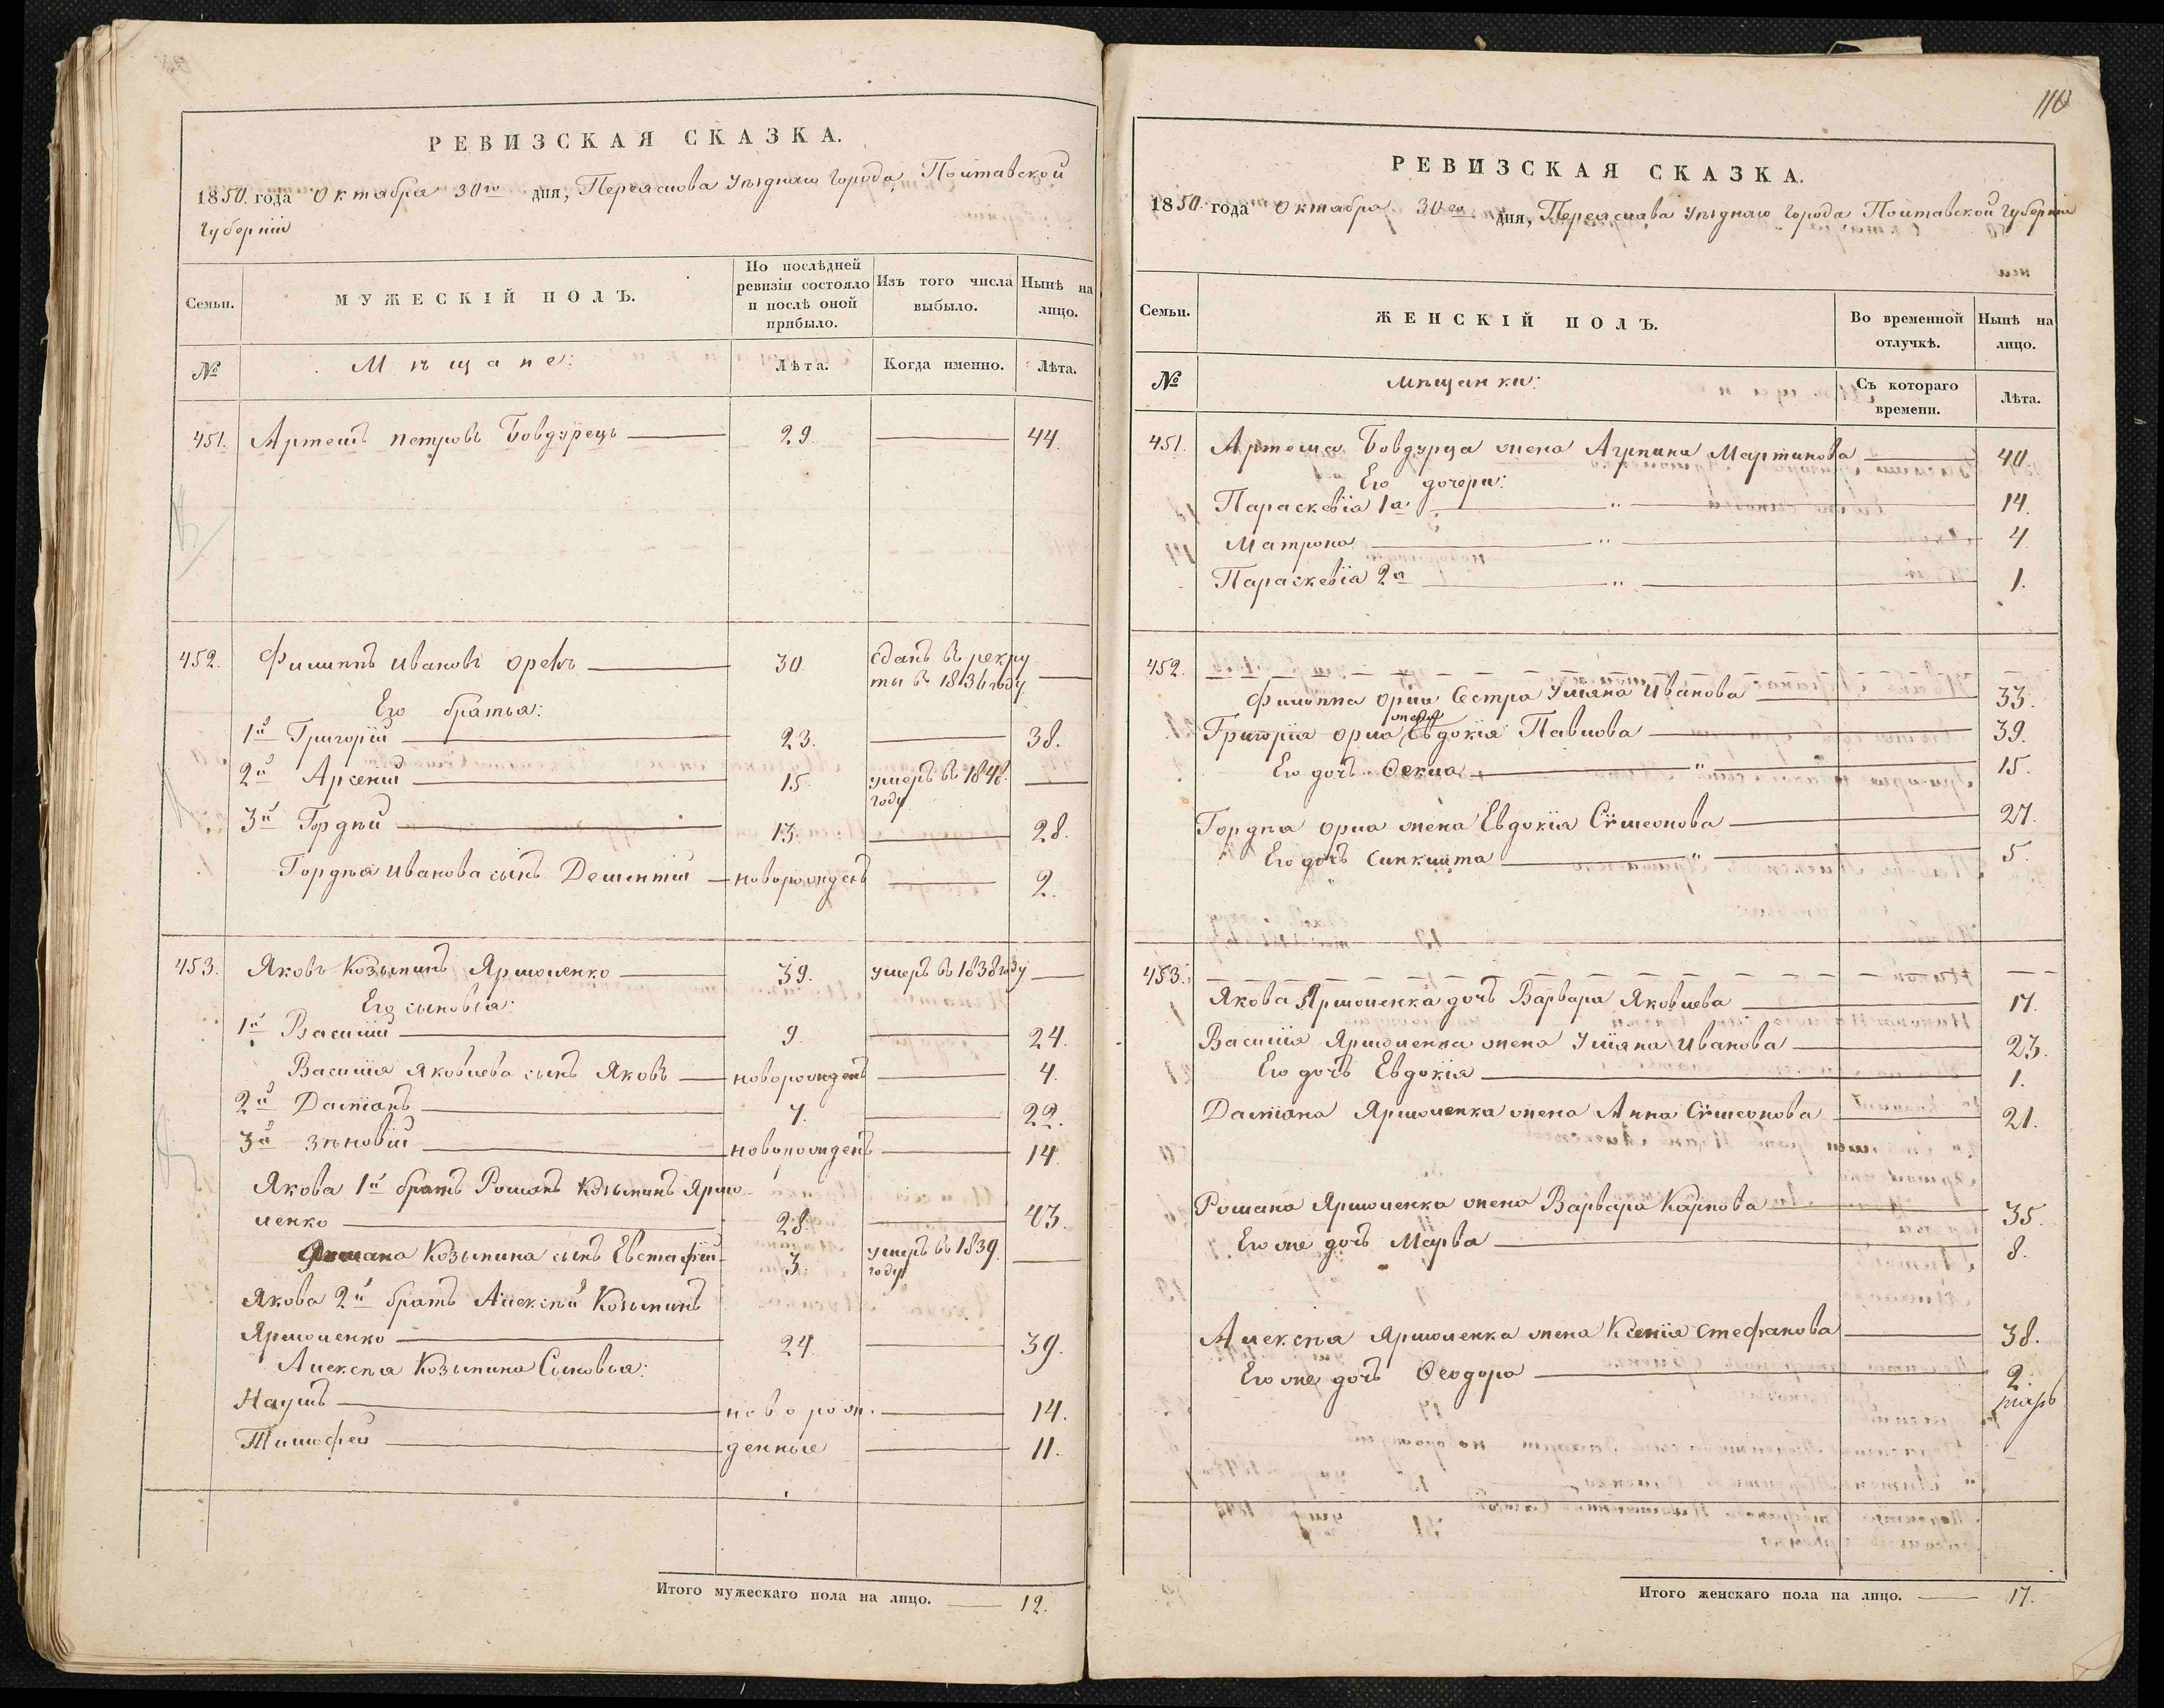 РЕВИЗСКАЯ СКАЗКА.
1850. года Октября 30го дня, Переяслова Уѣзднаго Города, Полтавской
Губерніи
Семьи.
МУЖЕСКІЙ ПОЛЪ.
По послѣдней ревизіи состояло и послѣ оной прибыло.
Изъ того числа выбыло.
Нынѣ на лицо.
№
Мѣщане:
Лѣта.
Когда именно.
Лѣта.
451. Артемъ Петровъ Бовдурецъ 29. 44.
452. Филиппъ Ивановъ Орелъ 30 сданъ въ рекру
ты въ 1836 году
Его братья:
1й Григорій 23. 38.
2й Арсеній 15 умеръ въ 1848.
году
3й Гордѣй 13. 28.
Гордѣя Иванова сынъ Дементій новорожденъ 2.
453. Яковъ Козьминъ Ярмоленко 39. умеръ въ 1838 году
Его сыновья:
1й Василій 9. 24.
Василія Яковлева сынъ Яковъ новорожденъ 4.
2й Даміанъ 7. 22.
3й Зѣновій новорожденъ 14.
Якова 1й братъ Романъ Козьминъ Ярмо
ленко 28. 43.
Романа Козьмина сынъ Евстафій 3. умеръ въ 1839.
году
Якова 2й братъ Алексѣй Козьминъ
Ярмоленко 24. 39.
Алексѣя Козьмина Сыновья:
Наумъ новорож 14.
Тимофей денные 11.
Итого мужескаго пола на лицо. 12.
110
РЕВИЗСКАЯ СКАЗКА.
1850. года Октября 30го дня, Переяслава Уѣзднаго Города Полтавской Губерніи
Семьи.
ЖЕНСКІЙ ПОЛЪ.
Во временной отлучкѣ.
Нынѣ на лицо.
№
Мѣщанки:
Съ котораго времени.
Лѣта.
451. Артема Бовдурца жена Агрпина Мартинова 40.
Его дочери:
Параскевія 1а " 14.
Матрона " 4.
Параскевія 2а " 1.
452.
Филиппа Орла Сестра Уліяна Иванова 33.
жена
Григорія Орла Евдокія Павлова 39.
Его дочь Ѳекла " 15.
Гордѣя Орла жена Евдокія Сѵмеонова 27.
Его дочь Синклита " 5.
453.
Якова Ярмоленка дочь Варвара Яковлева 17.
Василія Ярмоленка жена Уліяна Иванова 23.
Его дочь Евдокія 1.
Даміана Ярмоленка жена Анна Сѵмеонова 21.
Романа Ярмоленка жена Варвара Карпова 35.
Его же дочь Марѳа 8.
Алексѣя Ярмоленка жена Ксенія Стефанова 38.
Его же дочь Ѳеодора 2.
Итого женскаго пола на лицо. 17.